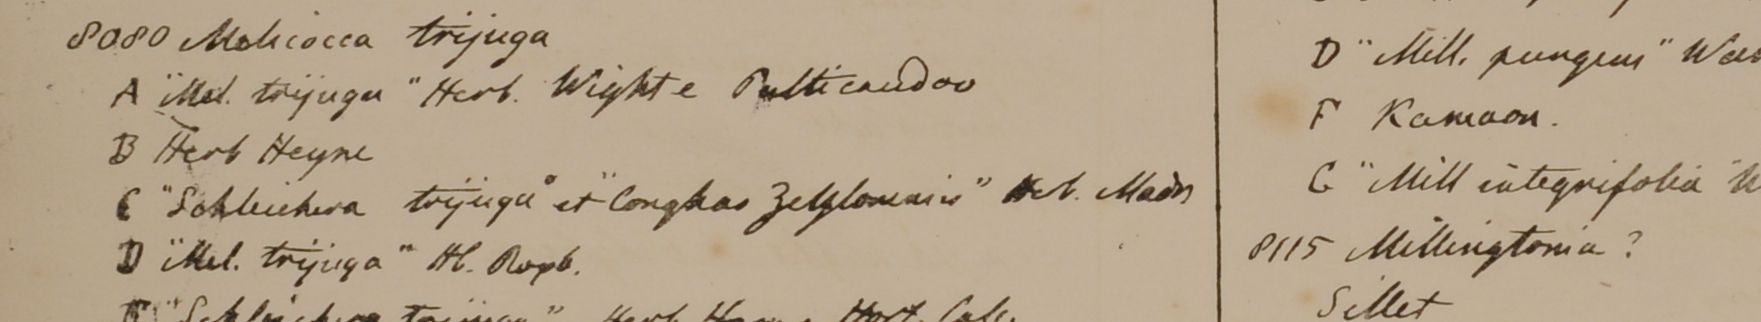 8080 Melicocca trijuga
A "Mel. trijuga" Herb. Wight e
B Herb Heyne
C "Schleichera trijuga" et "Conghas Zeylonensis" Herb. Madr
D "Mel. trijuga" Hb. Roxb.
"Schleichera trijuga" Herb. Ham. Hort. Calc.
D "Mill. pungens"
F Kamaon.
G "Mill integrifolia"
8115 Millingtonia?
Sillet